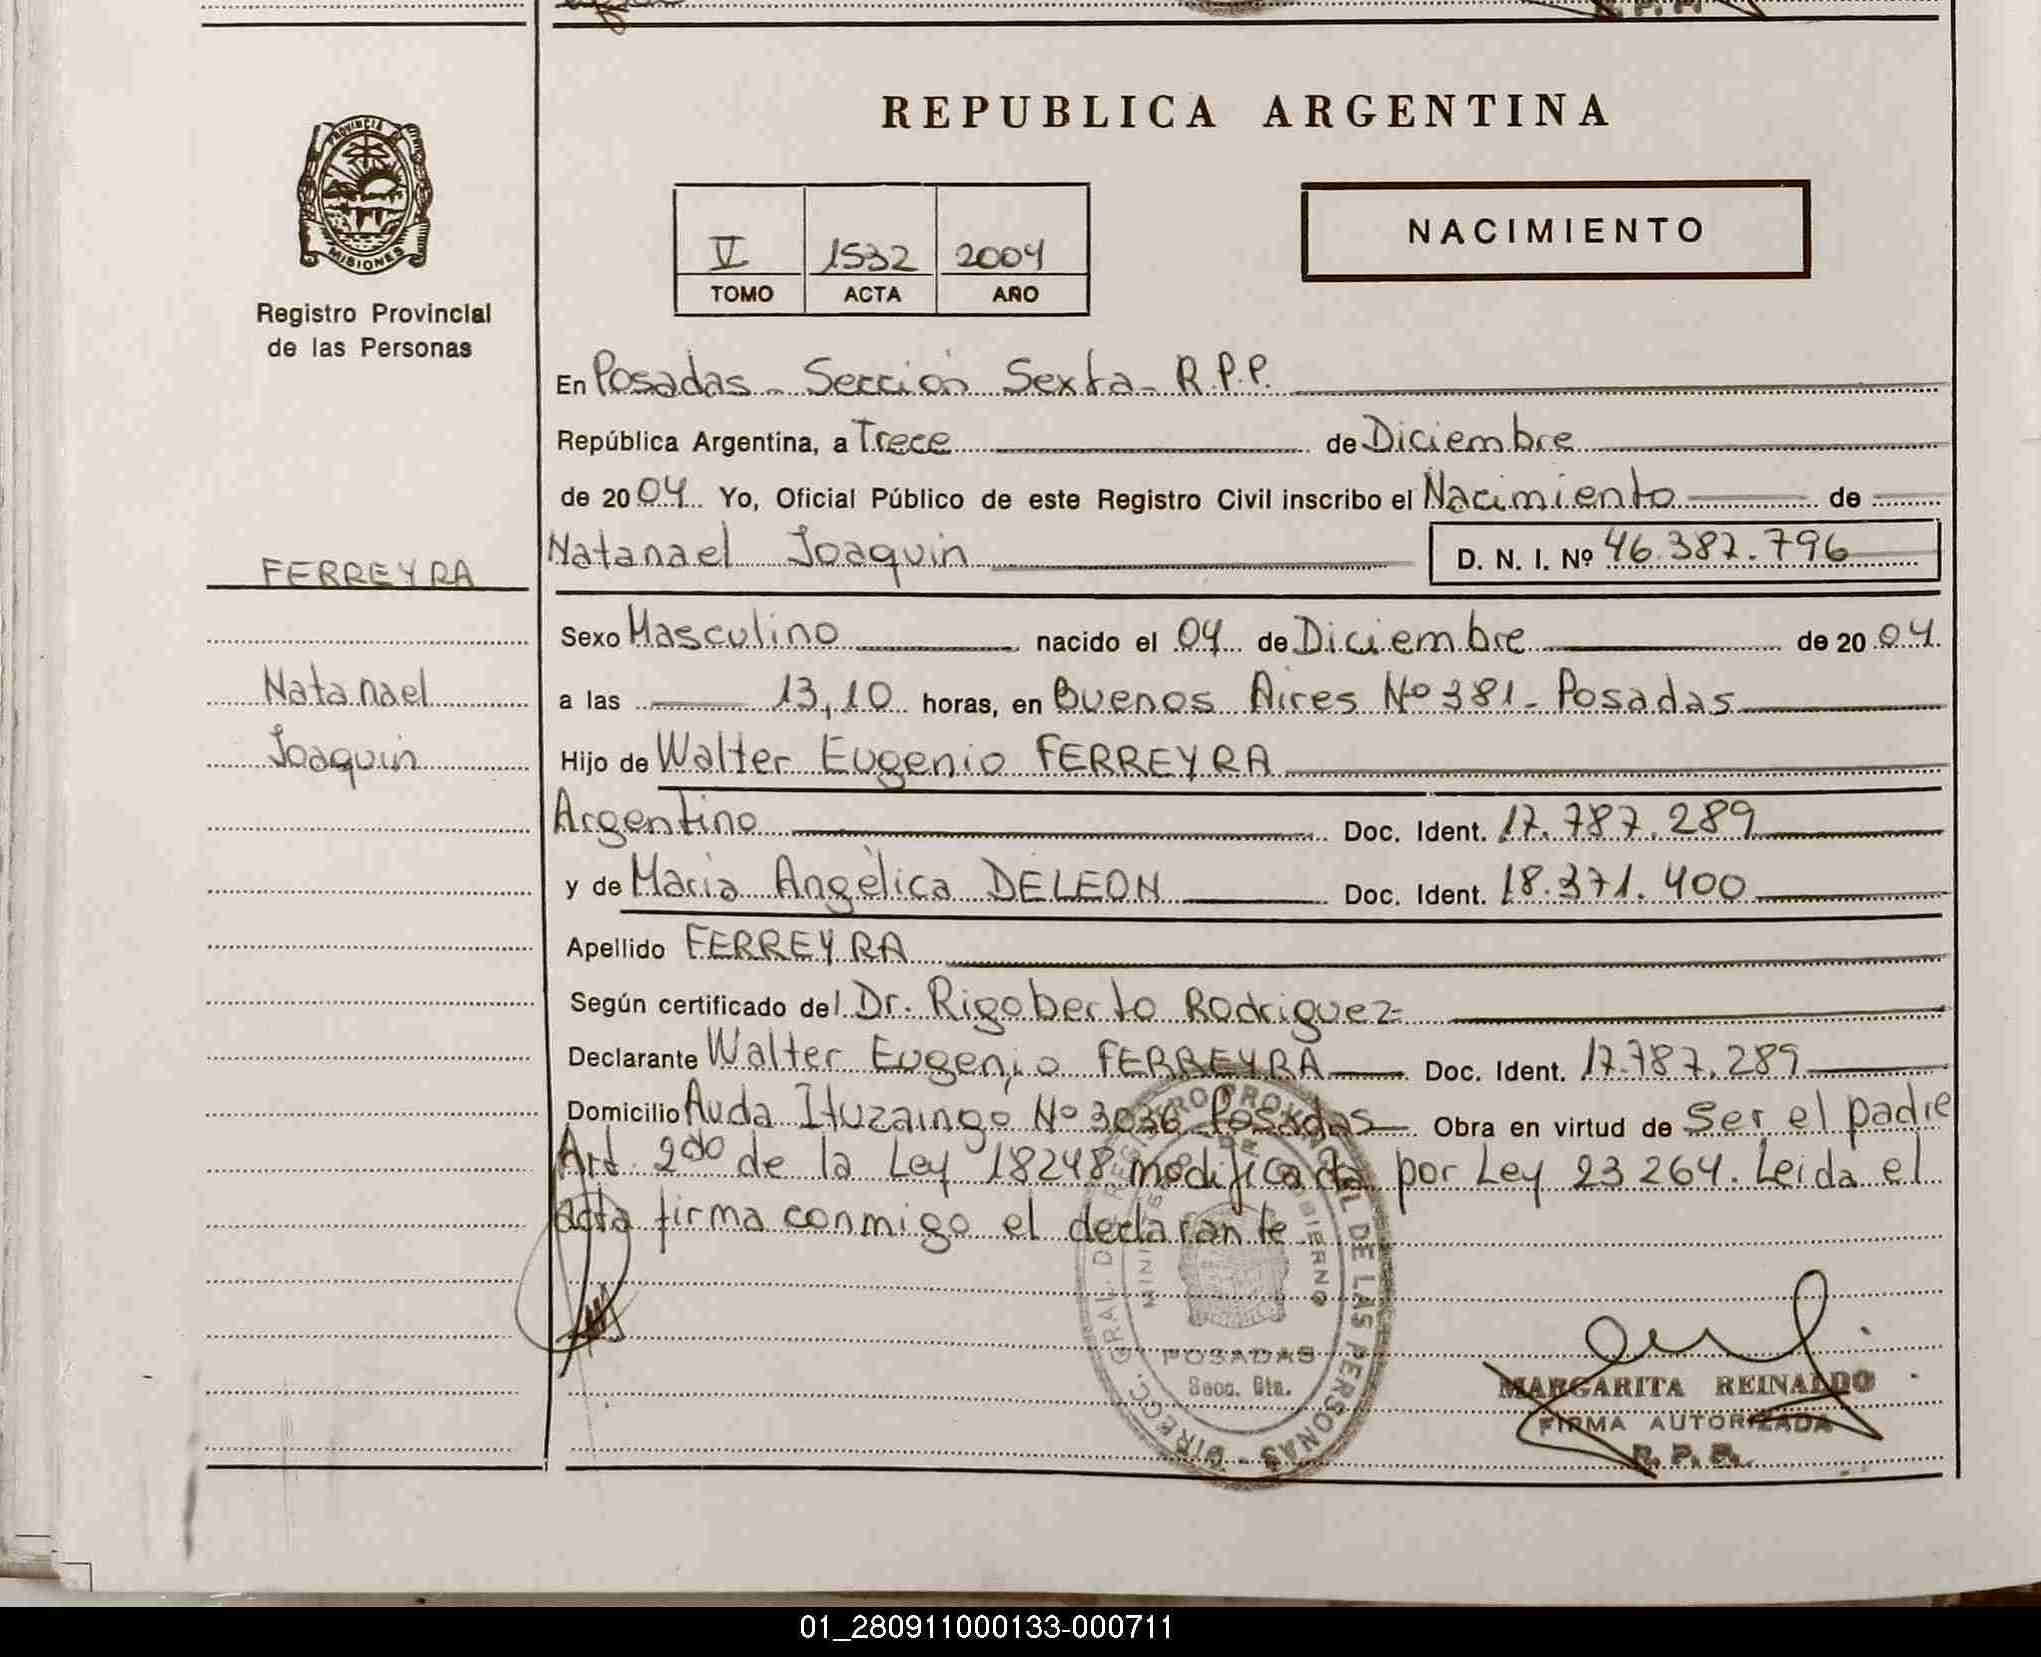 REPUBLICA ARGENTINA
PROVINCIA DE
MISIONES
Registro Provincial
de las Personas
V 1532 2004
TOMO ACTA AÑO
NACIMIENTO
En Posadas - Sección Sexta - R.P.P.
República Argentina, a Trece de Diciembre
de 2004 Yo, Oficial Público de este Registro Civil inscribo el Nacimiento de
FERREYRA
Natanael Joaquin D. N. I. Nº 46.382.796
Sexo Masculino nacido el 04 de Diciembre de 2004.
Natanael
a las 13,10 horas, en Buenos Aires Nº 381 - Posadas
Joaquin
Hijo de Walter Eugenio FERREYRA
Argentino Doc. Ident. 17.787.289
y de Maria Angèlica DELEON Doc. Ident. 18.371.400
Apellido FERREYRA
Según certificado del Dr. Rigoberto Rodriguez
Declarante Walter Eugenio FERREYRA Doc. Ident. 17.787.289
Domicilio Avda Ituzaingó Nº 3036 Posadas Obra en virtud de Ser el padre
Art. 2do de la Ley 18248 modificada por Ley 23264. Leida el
acta firma conmigo el declarante
DIRECC. GRAL. DE REGISTRO PROVINCIAL DE LAS PERSONAS
POSADAS
Secc. 6ta.
MARGARITA REINALDO
FIRMA AUTORIZADA
R. P. P.
01_280911000133-000711